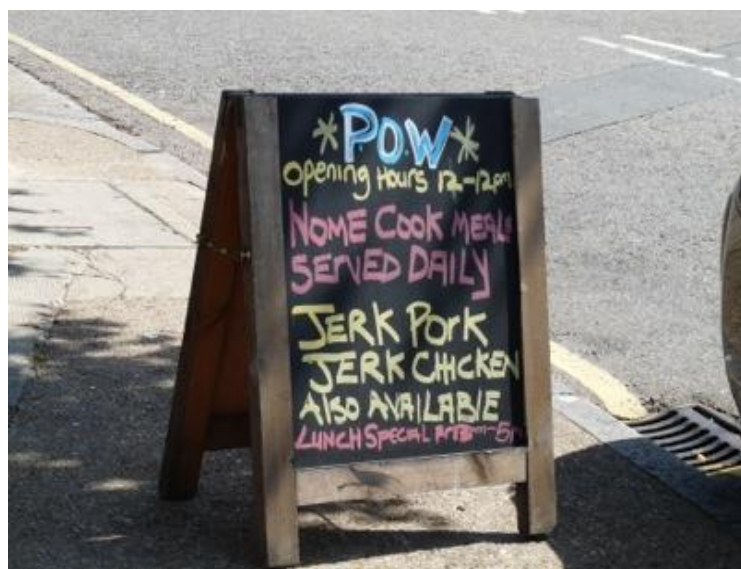 *P.O.W*
Opening Hours 12-12pm
NOME COOK MEALS
SERVED DAILY
JERK PORK
JERK CHICKEN
ALSO AVAILABLE
LUNCH SPECIAL